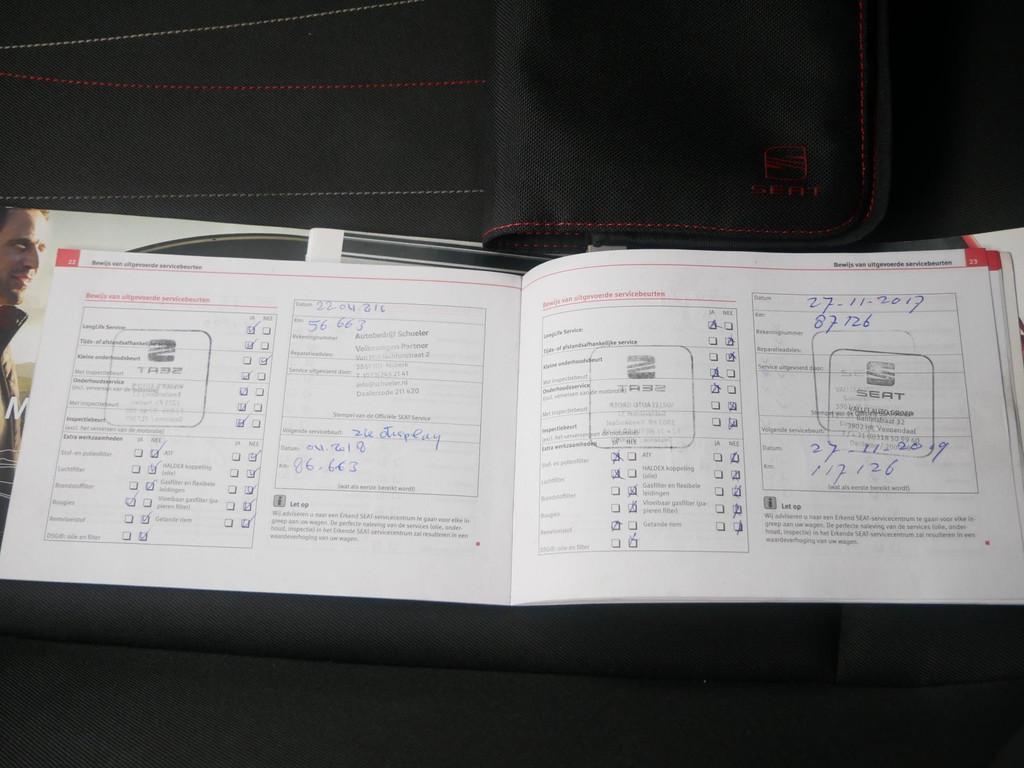 SEAT
22
Bewijs van uitgevoerde servicebeurten
Bewijs van uitgevoerde servicebeurten
JA NEE
LongLife Service:
Tijds- of afstandsafhankelijke service
Kleine onderhoudsbeurt
Met inspectiebeurt
Onderhoudsservice
(incl. verversen van de motorolie)
Met inspectiebeurt
Inspectiebeurt
(excl. het verversen van de motorolie)
Extra werkzaamheden
JA NEE
JA NEE
Stof- en pollenfilter
ATF
Luchtfilter
HALDEX koppeling (olie)
Brandstoffilter
Gasfilter en flexibele leidingen
Bougies
Vloeibaar gasfilter (papieren filter)
Remvloeistof
Getande riem
DSG®: olie en filter
Datum:
Km: 56 663
Rekeningnummer
Autobedrijf Schueler
Volkswagen Partner
Reparatieadvies:
Service uitgevoerd door:
info@schueler.nl
Dealercode 211 420
Stempel van de Officiële SEAT Service
Volgende servicebeurt: zie display
Datum: 04.2018
Km: 86.663
(wat als eerste bereikt wordt)
Let op
Wij adviseren u naar een Erkend SEAT-servicecentrum te gaan voor elke in-
greep aan uw wagen. De perfecte naleving van de services (olie, onder-
houd, inspectie) in het Erkende SEAT-servicecentrum zal resulteren in een
waardeverhoging van uw wagen.
Bewijs van uitgevoerde servicebeurten
23
Bewijs van uitgevoerde servicebeurten
JA NEE
LongLife Service:
Tijds- of afstandsafhankelijke service
Kleine onderhoudsbeurt
Met inspectiebeurt
Onderhoudsservice
(incl. verversen van de motorolie)
Met inspectiebeurt
Inspectiebeurt
(excl. het verversen van de motorolie)
Extra werkzaamheden
JA NEE
JA NEE
Stof- en pollenfilter
ATF
Luchtfilter
HALDEX koppeling (olie)
Brandstoffilter
Gasfilter en flexibele leidingen
Bougies
Vloeibaar gasfilter (papieren filter)
Remvloeistof
Getande riem
DSG®: olie en filter
Datum: 27-11-2017
Km: 87126
Rekeningnummer
Reparatieadvies:
Service uitgevoerd door:
SEAT
VALLEI AUTO GROEP
Veenendaal
Volgende servicebeurt:
Datum: 27-11-2019
Km: 117126
(wat als eerste bereikt wordt)
Let op
Wij adviseren u naar een Erkend SEAT-servicecentrum te gaan voor elke in-
greep aan uw wagen. De perfecte naleving van de services (olie, onder-
houd, inspectie) in het Erkende SEAT-servicecentrum zal resulteren in een
waardeverhoging van uw wagen.